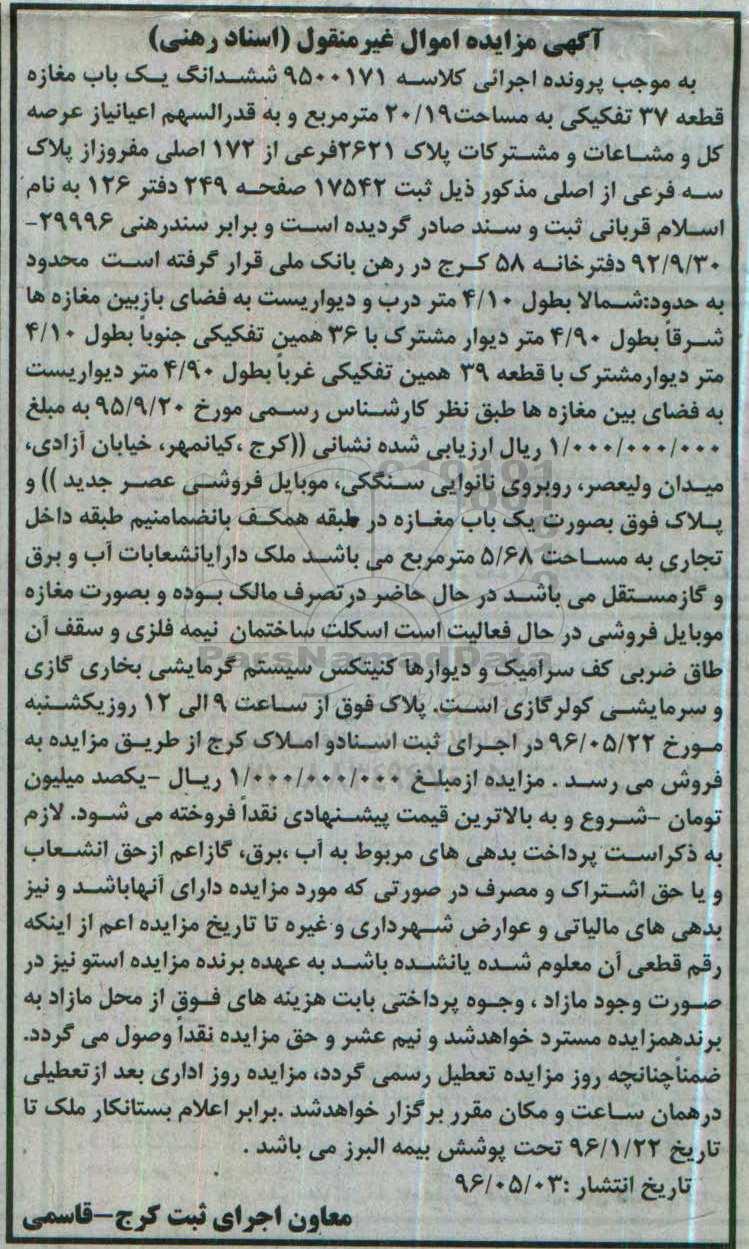 آگهی مزایده اموال غیرمنقول (اسناد رهنی)
به موجب پرونده اجرائی کلاسه ۹۵۰۰۱۷۱ ششدانگ یک باب مغازه
قطعه ۳۷ تفکیکی به مساحت۲۰/۱۹ مترمربع و به قدرالسهم اعیانیاز عرصه
کل و مشاعات و مشترکات پلاک ۲۶۲۱فرعی از ۱۷۲ اصلی مفروزاز پلاک
سه فرعی از اصلی مذکور ذیل ثبت ۱۷۵۴۲ صفحه ۲۴۹ دفتر ۱۲۶ به نام
اسلام قربانی ثبت و سند صادر گردیده است و برابر سندرهنی ۲۹۹۹۶-
۹۲/۹/۳۰ دفترخانه ۵۸ کرج در رهن بانک ملی قرار گرفته است محدود
به حدود:شمالا بطول ۴/۱۰ متر درب و دیواریست به فضای بازبین مغازه ها
شرقاً بطول ۴/۹۰ متر دیوار مشترک با ۳۶ همین تفکیکی جنوباً بطول ۴/۱۰
متر دیوارمشترک با قطعه ۳۹ همین تفکیکی غرباً بطول ۴/۹۰ متر دیواریست
به فضای بین مغازه ها طبق نظر کارشناس رسمی مورخ ۹۵/۹/۲۰ به مبلغ
۱/۰۰۰/۰۰۰/۰۰۰ ریال ارزیابی شده نشانی ((کرج ،کیانمهر، خیابان آزادی،
میدان ولیعصر، روبروی نانوایی سنگکی، موبایل فروشی عصر جدید )) و
پلاک فوق بصورت یک باب مغازه در طبقه همکف بانضمامنیم طبقه داخل
تجاری به مساحت ۵/۶۸ مترمربع می باشد ملک دارایانشعابات آب و برق
و گازمستقل می باشد در حال حاضر درتصرف مالک بوده و بصورت مغازه
موبایل فروشی در حال فعالیت است اسکلت ساختمان نیمه فلزی و سقف آن
ParsNamadData
طاق ضربی کف سرامیک و دیوارها کنیتکس سیستم گرمایشی بخاری گازی
و سرمایشی کولرگازی است. پلاک فوق از ساعت ۹ الی ۱۲ روزیکشنبه
مورخ ۹۶/۰۵/۲۲ در اجرای ثبت اسنادو املاک کرج از طریق مزایده به
فروش می رسد . مزایده ازمبلغ ۱/۰۰۰/۰۰۰/۰۰۰ ریال -یکصد میلیون
تومان -شروع و به بالاترین قیمت پیشنهادی نقداً فروخته می شود. لازم
به ذکراست پرداخت بدهی های مربوط به آب ،برق، گازاعم ازحق انشعاب
و یا حق اشتراک و مصرف در صورتی که مورد مزایده دارای آنهاباشد و نیز
بدهی های مالیاتی و عوارض شهرداری و غیره تا تاریخ مزایده اعم از اینکه
رقم قطعی آن معلوم شده یانشده باشد به عهده برنده مزایده استو نیز در
صورت وجود مازاد ، وجوه پرداختی بابت هزینه های فوق از محل مازاد به
برندهمزایده مسترد خواهدشد و نیم عشر و حق مزایده نقداً وصول می گردد.
ضمناًچنانچه روز مزایده تعطیل رسمی گردد، مزایده روز اداری بعد ازتعطیلی
درهمان ساعت و مکان مقرر برگزار خواهدشد .برابر اعلام بستانکار ملک تا
تاریخ ۹۶/۱/۲۲ تحت پوشش بیمه البرز می باشد .
تاریخ انتشار :۹۶/۰۵/۰۳
معاون اجرای ثبت کرج-قاسمی